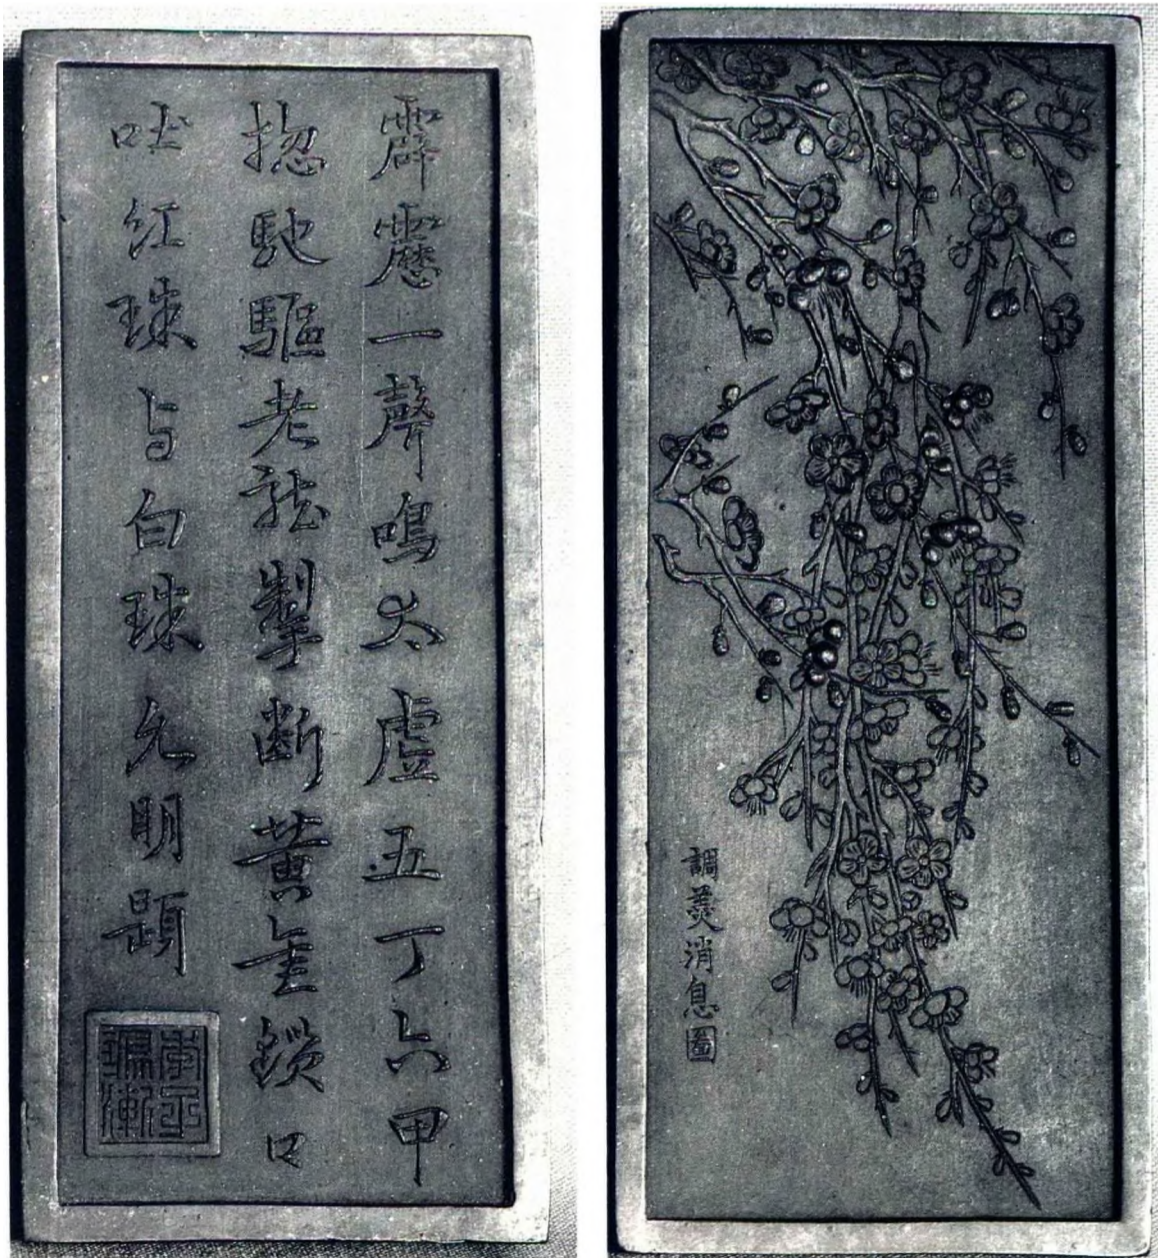 霹靂一聲鳴太虛五丁六甲
揔馳驅老龍掣断黃金鎖口
吐红珠与白珠允明題
調羹消息圖